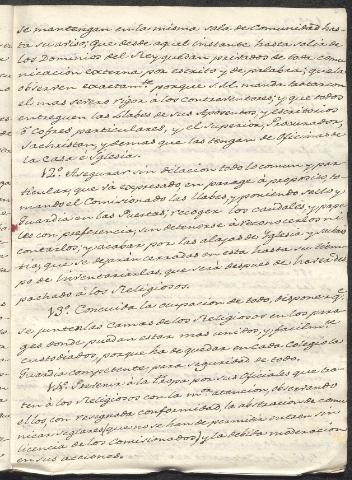 se mantengan en la misma sala de Comunidad has-
ta su aviso; que desde aquel instante hasta salir de
los Dominios del Rey quedan privados de toda comu-
nicacion externa por escrito y de palabra; que la
observen exactamte porque S.M. manda tratar con
el mas severo rigor à los Contraventores; y que todos
entreguen las llabes de sus Aposentos, y escritorios
ò Cofres particulares, y el Superior, Procurador,
Sachristan, y demas que las tengan de Oficinas de
la Casa è Iglesia.
12º Asegurar sin dilacion todo lo comun y par-
ticular, que va expresado, en parage à proposito to-
mando el Comisionado las llabes, y poniendo Sello y
Guardia en las Puertas; recoger los caudales, y pape-
les con preferencia, sin detenerse à reconocerlos ni
contarlos; y acabar por las alajas de Iglesia y Sachris-
tia, que se dejarán cerradas en esta hasta su tiem-
po de Inventariarlas, que será despues de haver des-
pachado à los Religiosos.
13º Concluida la ocupacion de todo, disponer qe
se junten las Camas de los Religiosos en los para-
ges donde puedan estar mas unidos, y facilmte
custodiados, porque ha de quedar en cada Colegio la
Guardia competente para seguridad de todo.
14º Prevenir à la Tropa por sus Oficiales que tra-
ten à los Religiosos con la mor atencion, observando
ellos con resignada conformidad, la abstraccion de comu-
nicar seglares (que no se han de permitir entren sin
licencia de los Comisionados) y la debida moderacion
en sus acciones.